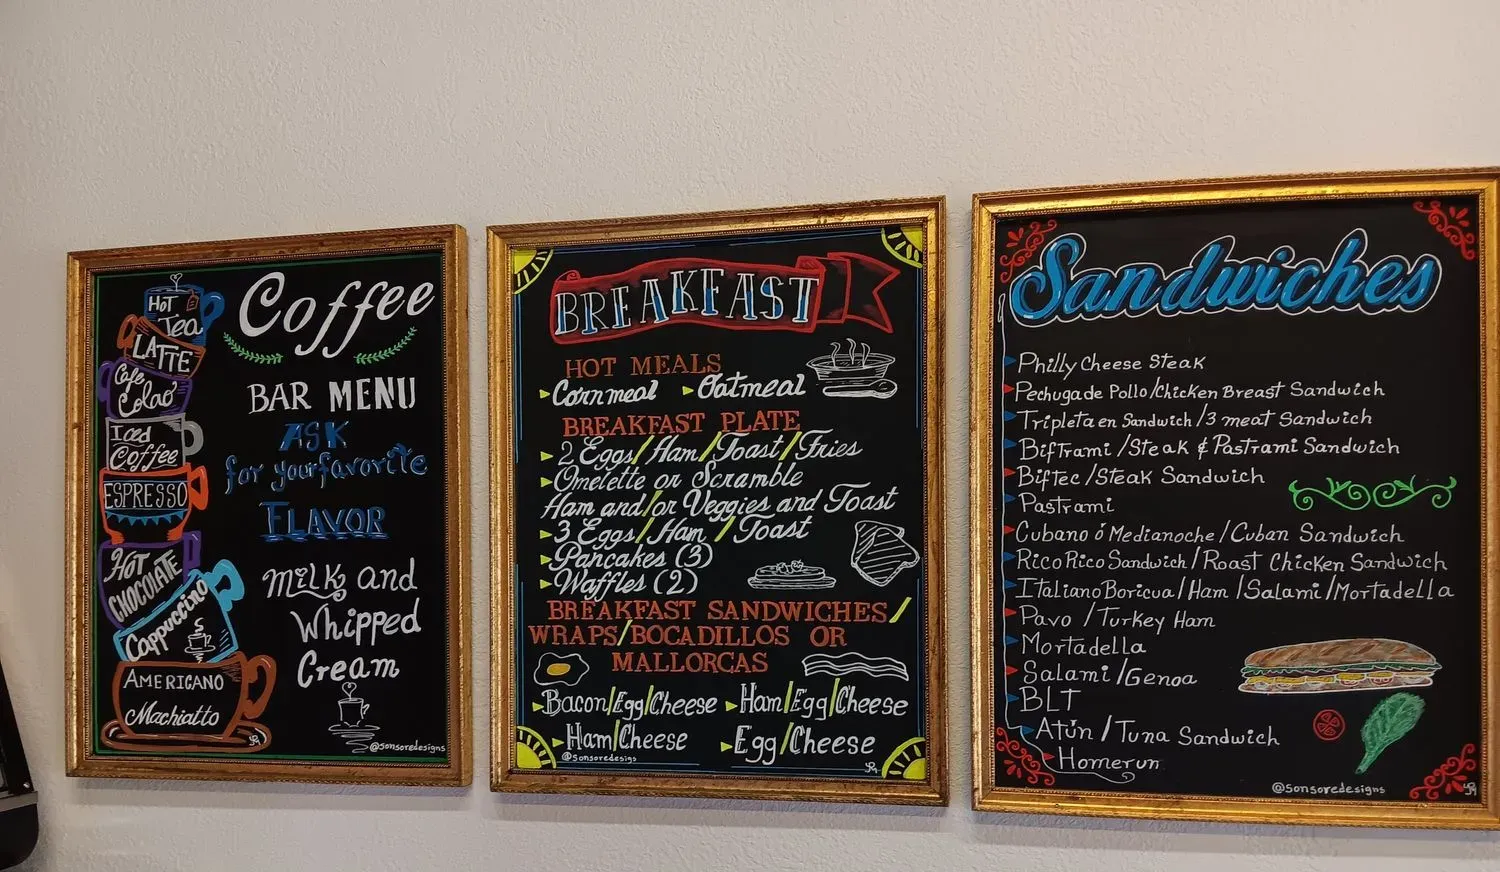 Hot
Tea
LATTE
Cafe
Colao
Iced
Coffee
ESPRESSO
HOT
CHOCOLATE
Cappuccino
AMERICANO
Machiatto
Coffee
BAR MENU
ASK
for your favorite
FLAVOR
Milk and
Whipped
Cream
@sonsoredesigns
BREAKFAST
HOT MEALS
Cornmeal Oatmeal
BREAKFAST PLATE
2 Eggs/Ham/Toast/Fries
Omelette or Scramble
Ham and/or Veggies and Toast
3 Eggs/Ham/Toast
Pancakes (3)
Waffles (2)
BREAKFAST SANDWICHES/
WRAPS/BOCADILLOS OR
MALLORCAS
Bacon/Egg/Cheese Ham/Egg/Cheese
Ham/Cheese Egg/Cheese
@sonsoredesigs
Sandwiches
Philly Cheese Steak
Pechuga de Pollo/Chicken Breast Sandwich
Tripleta en Sandwich/3 meat Sandwich
Biftrami/Steak & Pastrami Sandwich
Biftec/Steak Sandwich
Pastrami
Cubano ó Medianoche/Cuban Sandwich
Rico Rico Sandwich/Roast Chicken Sandwich
Italiano Boricua/Ham/Salami/Mortadella
Pavo/Turkey Ham
Mortadella
Salami/Genoa
BLT
Atún/Tuna Sandwich
Homerun
@sonsoredesigns